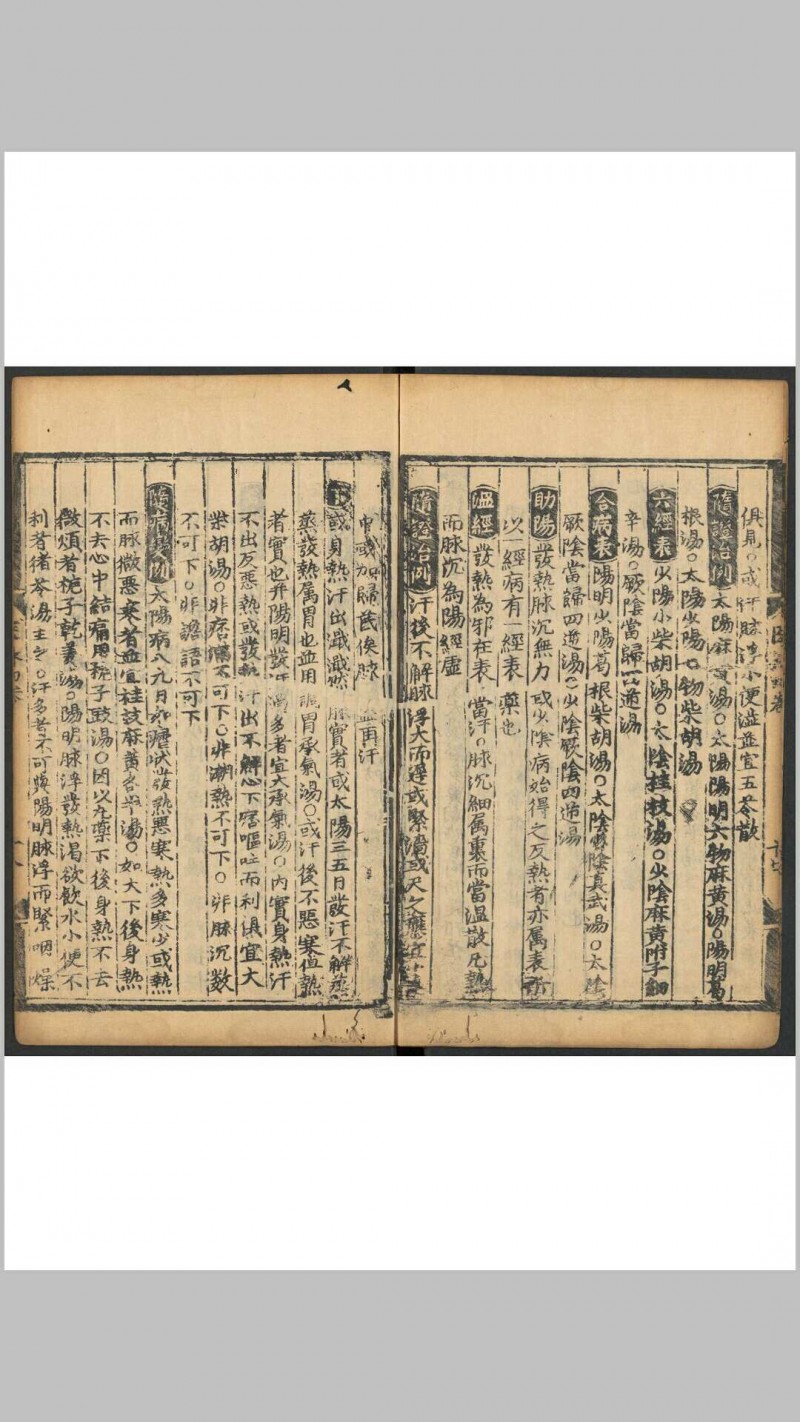 俱見○或汗脉浮小便澁並宜五苓散
隨證治例 太陽麻黃湯○太陽陽明六物麻黃湯○陽明葛
根湯○太陽少陽七物柴胡湯
六經表 少陽小柴胡湯○太陰桂枝湯○少陰麻黃附子細
辛湯○厥陰當歸四逆湯
合病表 陽明少陽葛根柴胡湯○太陰少陰真武湯○太陰
厥陰當歸四逆湯○少陰厥陰四逆湯
助陽 發熱脉沉無力或少陰病始得之反熱者亦属表
以一經病有一經表藥也
溫經 發熱為邪在表當汗○脉沉細属裏而當温散凡熱
而脉沉為陽經虛
隨證治例 汗後不解脉浮大而遲或緊濇或尺之
中或加歸芪俟脉 再汗
下 或身熱汗出濈濈然脉實者或太陽三五日發汗不解蒸
蒸發熱属胃也並用調胃承氣湯○或汗後不惡寒但熱
者實也并陽明發汗 多者宜大承氣湯○內實身熱汗
不出反惡熱或發熱汗出不解心下痞嘔吐而利俱宜大
柴胡湯○非痞滿不可下○非潮熱不可下○非脉沉数
不可下○非譫語不可下
隨病 例 太陽病八九日如瘧狀發熱惡寒熱多寒少或熱
而脉微惡寒者並宜桂枝麻黃各半湯○如大下後身熱
不去心中結痛用梔子豉湯○因以丸藥下後身熱不去
微煩者梔子乾姜湯○陽明脉浮發熱渴欲飲水小便不
利者猪苓湯主之○汗多者不可與陽明脉浮而緊咽燥